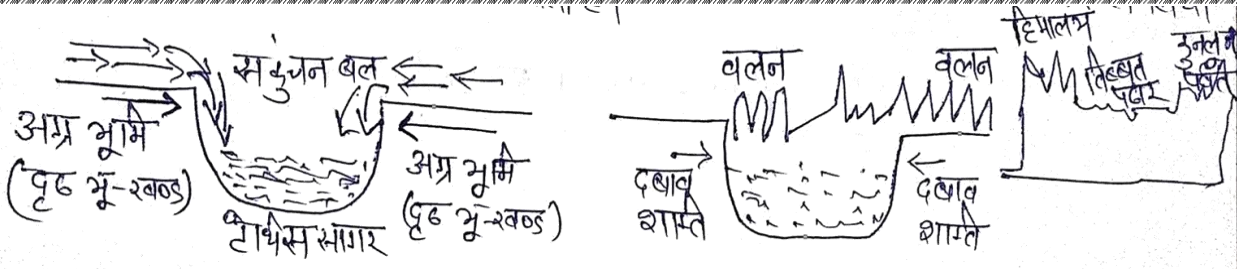 संकुचन बल
अग्र भूमि
(दृढ भू-खण्ड)
अग्र भूमि
(दृढ भू-खण्ड)
टेथिस सागर
वलन
वलन
दबाव
शक्ति
दबाव
शक्ति
हिमालय
तिब्बत
पठार